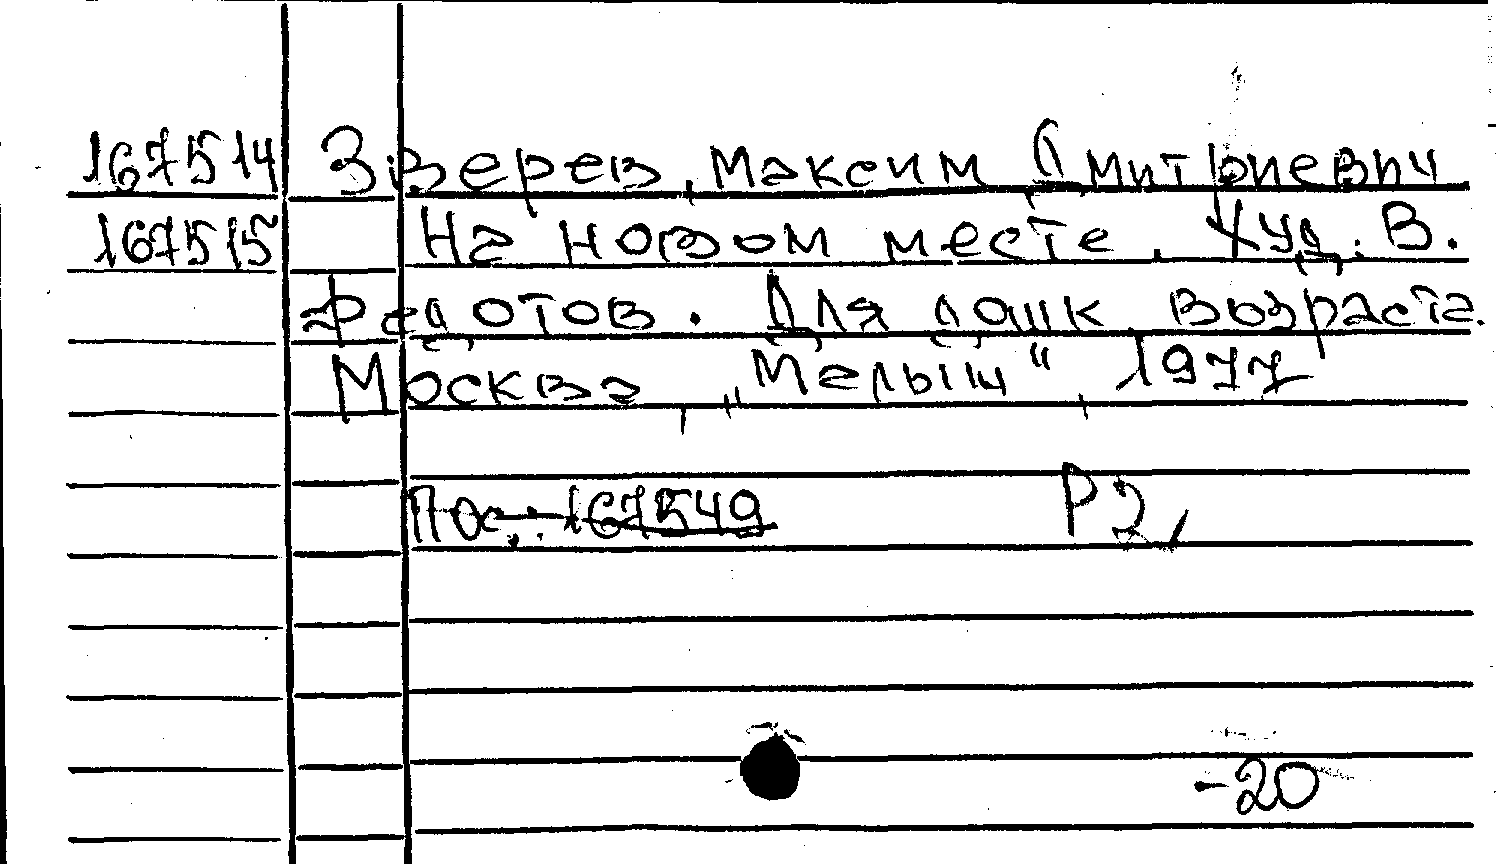 167514 Зверев, Максим Дмитриевич
167515 На новом месте. Худ. В.
Федотов. Для дошк. возраста.
Москва, „Малыш“, 1977
Пос.: 167549 Р2,
-20